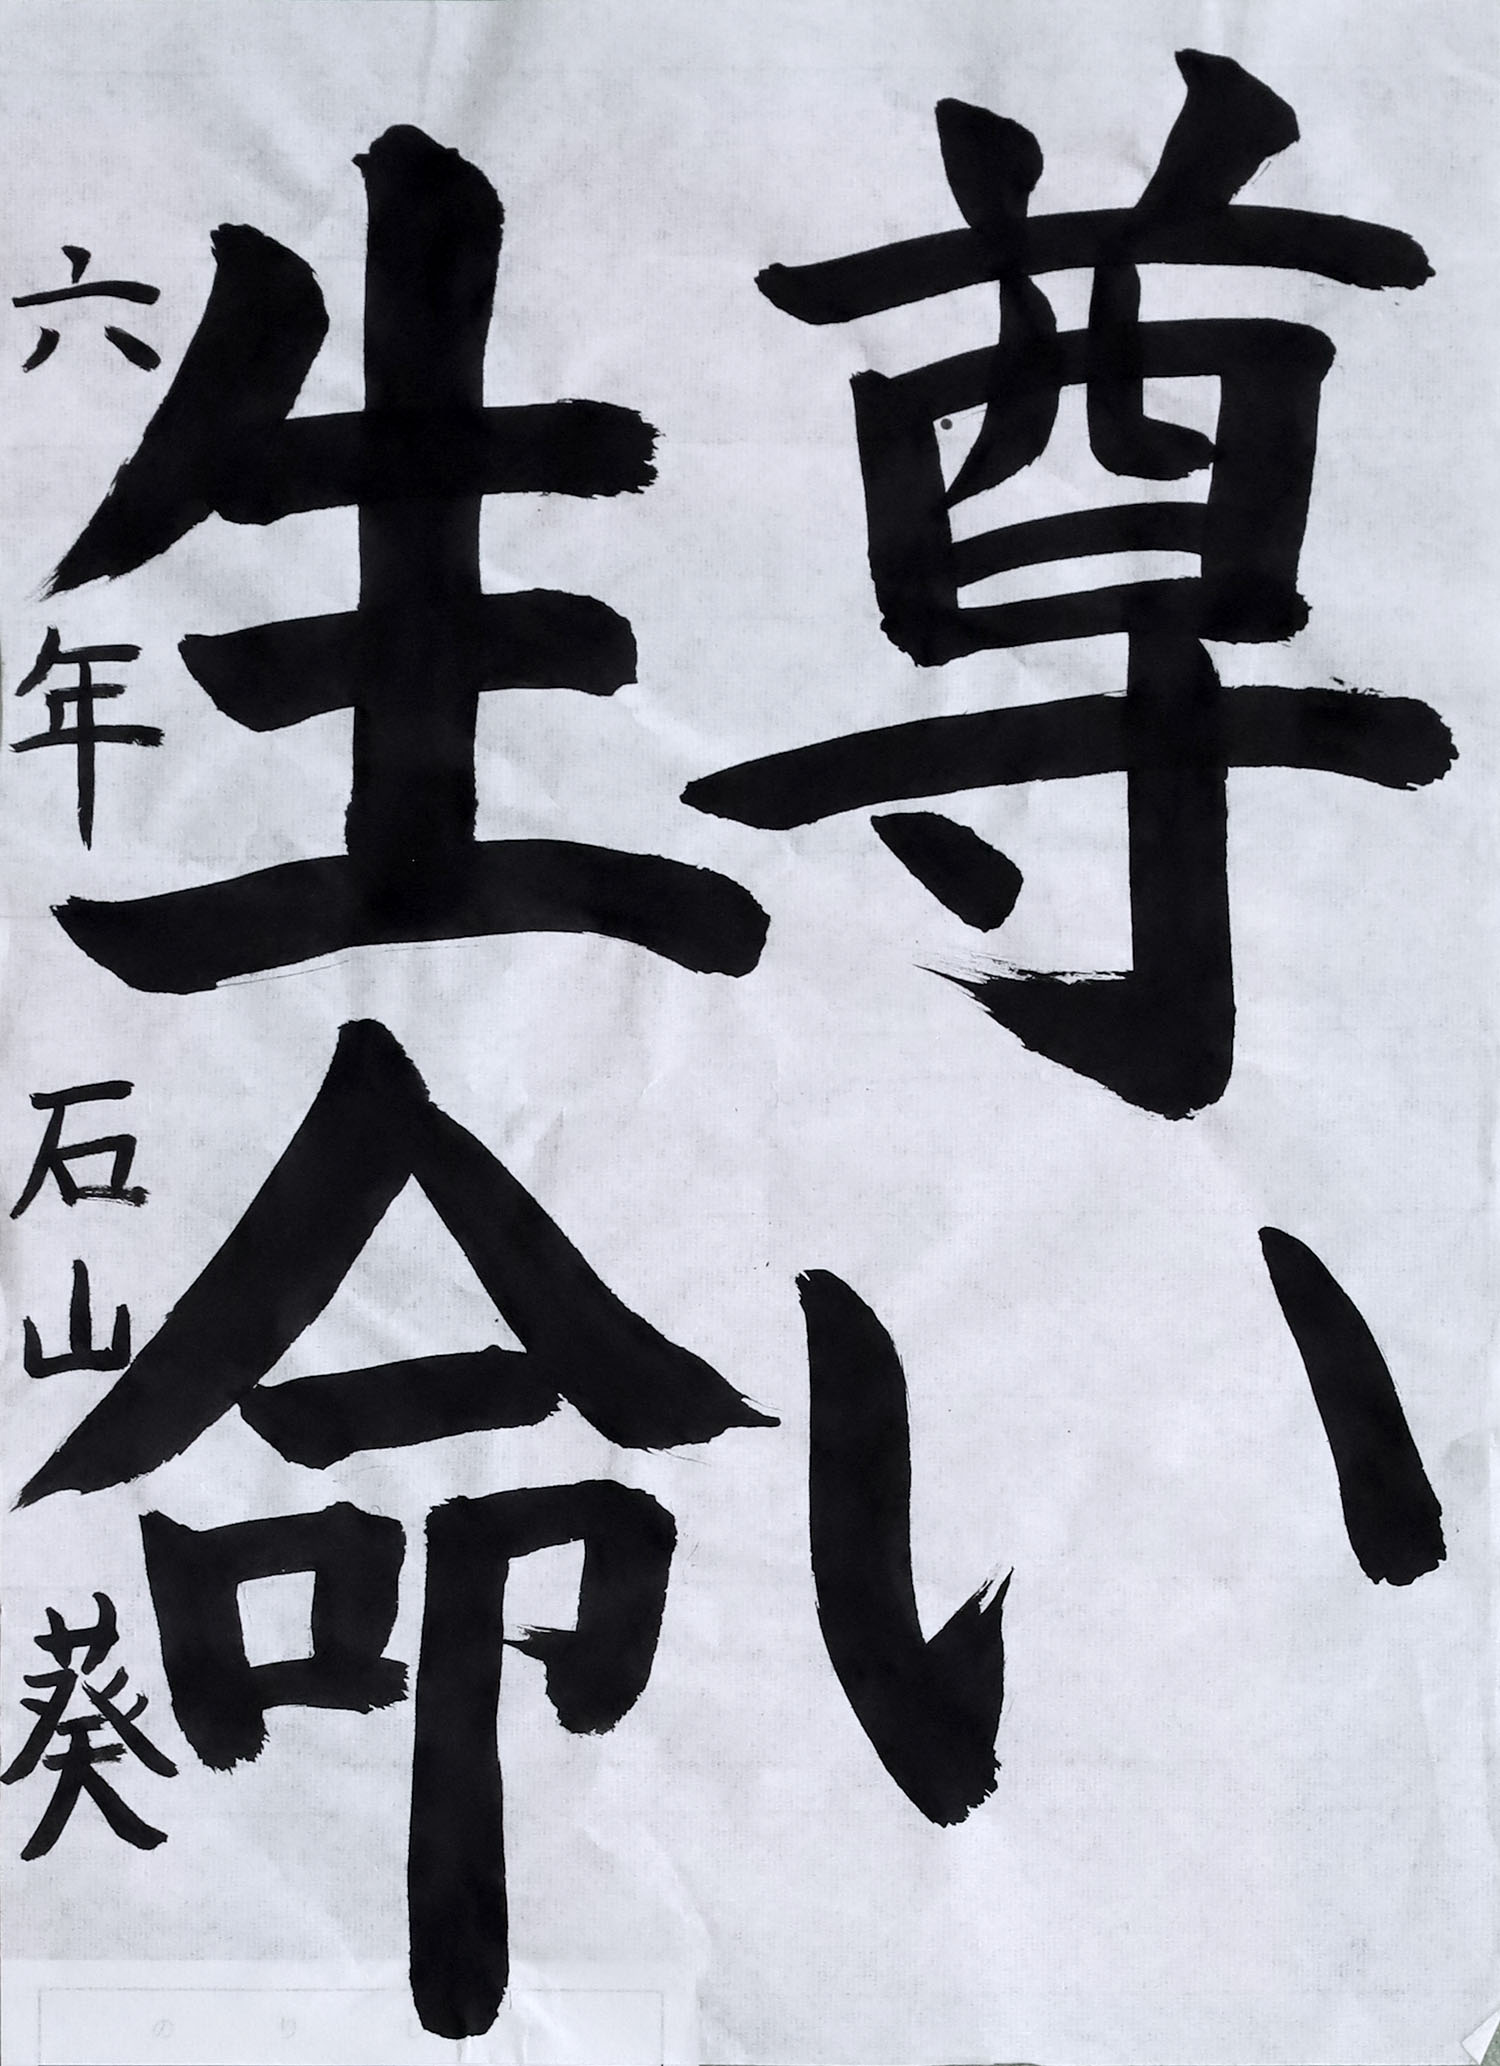 尊い
生命
六年 石山葵